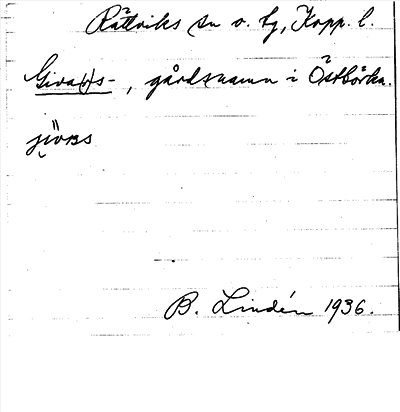 Rättviks sn o. tg, Kopp. l.
Giva(r)s-, gårdsnamn i Östbjörka.
jiv̈ɔs
B. Lindén 1936.